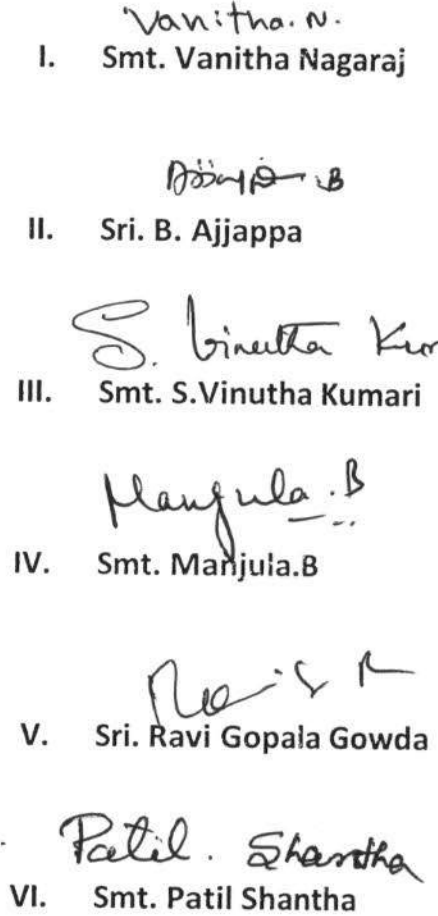 Vanitha. N.
I. Smt. Vanitha Nagaraj
Ajjappa B
II. Sri. B. Ajjappa
S. Vinutha Kum
III. Smt. S.Vinutha Kumari
Manjula .B
IV. Smt. Manjula.B
V. Sri. Ravi Gopala Gowda
Patil. Shantha
VI. Smt. Patil Shantha